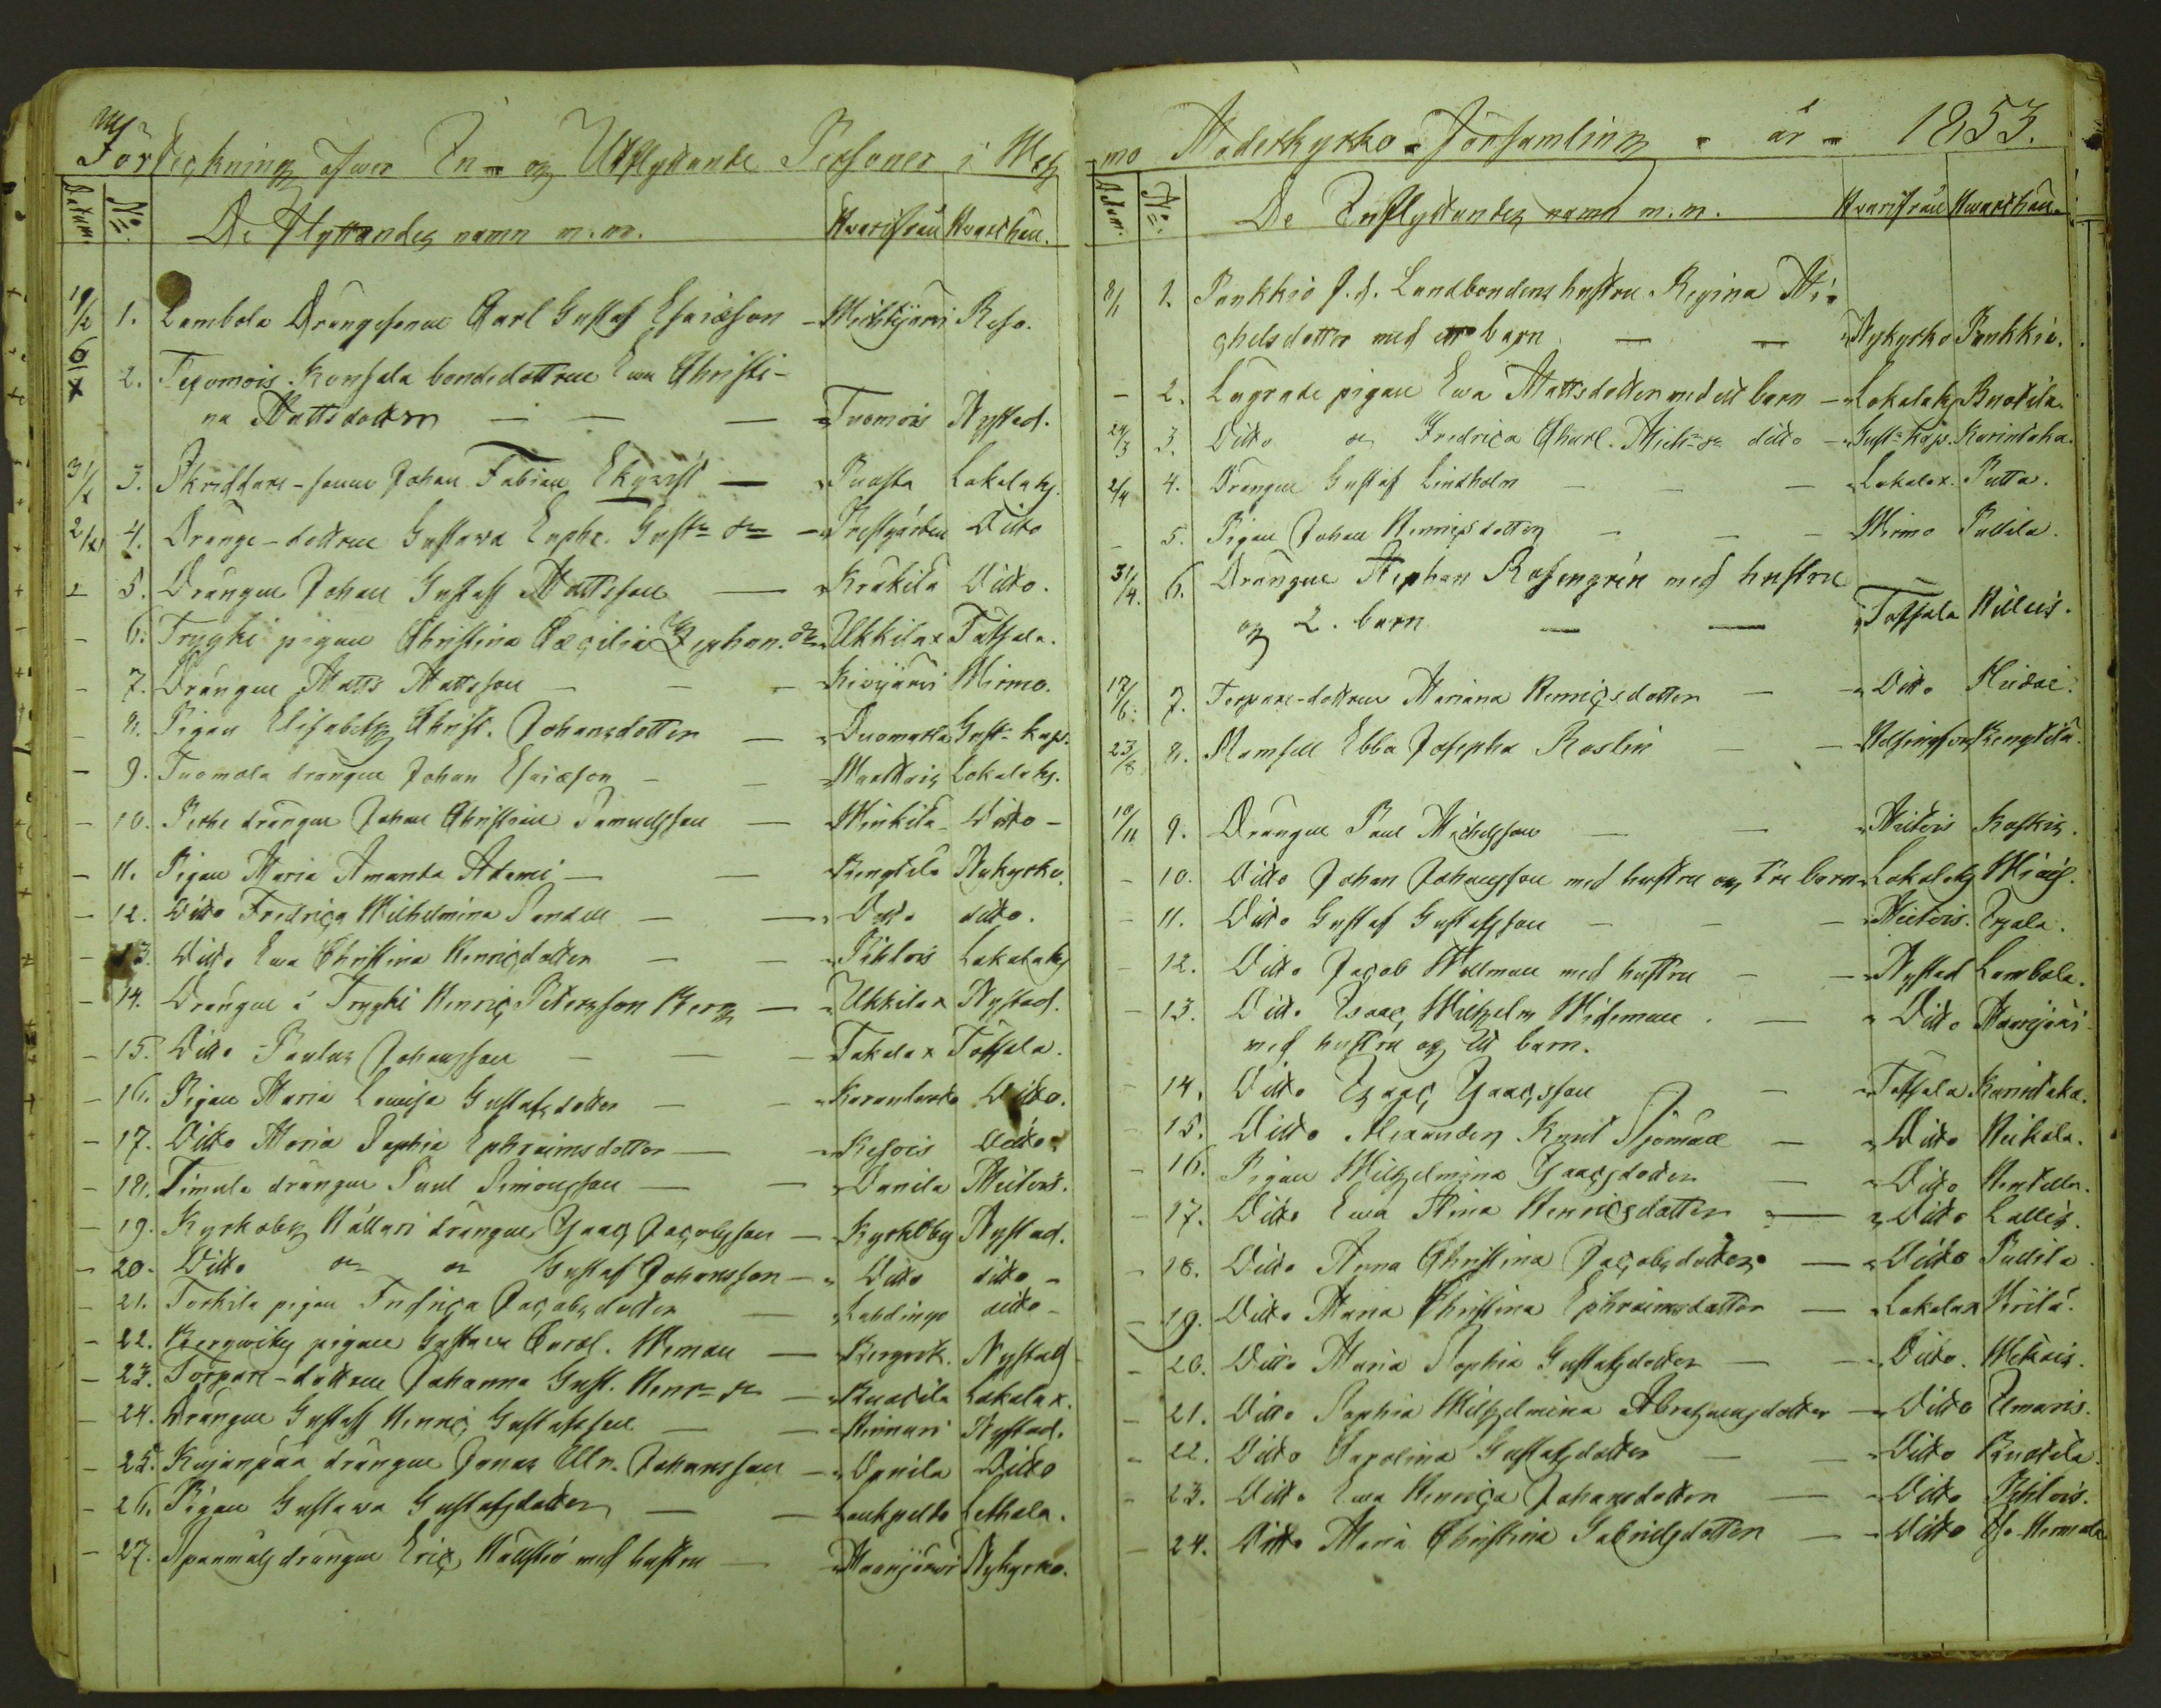 Förteckning öfwer In- og Utflyttande Personer i Weh
Datum. No De Flyttandes namn m.m. Hvarifrån Hvarthän.
19/2 1. Lambola Drängsonen Carl Gustaf Esaiæson - Wehkjärvi Reso.
2. Tuomois Konsala bondedottren Ewa Christi-
na Mattsdotter — — — Tuomois Nystad.
3. Skreddare-sonen Johan Fabian Ekqvist — Puosta Lokalaks.
4. Drängs-dottren Gustava Euphr. Gust. dr — Prestgården Ditto
5. Drängen Johan Gustaff Mattsson — Kräkilä Ditto.
- 6. Trygki pigan Christina Cæcilia Stephan. dr Ukkilax Töfsala.
- 7. Drängen Matts Mattsson — — Kivijärvi Wirmo.
- 8. Pigan Elisabeth Christ. Johansdotter — Duomatta Gust. kap.
- 9. Tuomola drängen Johan Esaiæson — — Maattais Lokalaks.
- 10. drängen Johan Christian Samuelsson — Minkilä Ditto -
- 11. Pigan Maria Amanda Adami — — Bengtilä Nykyrko.
- 12. Ditto Fredrica Wilhelmina Sandell — — Ditto ditto.
- 13. Ditto Ewa Christina Henricsdotter — — Pihlois Lokalaks
- 14. Drängen i Trygki Henric Petersson Berg — Ukkilax Nystad.
- 15. Ditto Paulus Johansson — — Takalax Töfsala.
- 16. Pigan Maria Lovisa Gustafsdotter — — Ditto.
- 17. Ditto Maria Sophia Ephraimsdotter — Kesois Ditto.
- 18. Simula drängen Paul Simonsson — — Danila Mietois.
- 19. Kyrkoby Källari drängen Isaac Jacobsson — Kyrkoby Nystad.
- 20. Ditto Gustaf Johansson — Ditto ditto -
- 21. Torkila pigan Fredrica Jacobsdotter — Lahdinge ditto -
- 22. Bergwiks pigan Gustava Carol. Weman — Bergvik. Nystad
- 23. Torpare-dottren Johanna Gust. Henr. dr — Ruotila Lokalax.
- 24. Drängen Gustaff Henric Gustafsson — Kinnari Nystad.
- 25. Kujanpää drängen Jonas Johansson — Danila Ditto
- 26. Pigan Gustava Gustafsdotter — — Laukpelto Letkala.
- 27. Spannmåls drängen Eric Källström med hustru — Maanjärwi Nykyrko.
mo Moderkyrko-Församling år 1853.
Datum. No De Inflyttandes namn m.m. Hvarifrån Hvarthän.
8/1 1. Punkkio f.d. Landbondens hustru Regina Mi-
chelsdotter med ett barn. — — Nykyrko Punkkio.
- 2. Lagrade pigan Ewa Mattsdotter med ett barn - Lokalaks Ruotila.
24/3 3. Ditto Fredrica Charl. Mich. dr ditto - Gust. kap. Karintaka.
2/4 4. Drängen Gustaf Lindholm — — Lokalax. Putta.
- 5. Pigan Johan Henricsdotter — — Wirmo Pullila.
31/4. 6. Drängen Stephan Rosengrén med hustru
og 2. barn — — Töfsala Killeis.
17/6. 7. Torpare-dottren Mariana Henricsdotter — Ditto
23/8 8. Mamsell Ebba Josepha Roslin — — Helsingfors Bengtilä.
10/11 9. Drängen Paul Michelsson — — Mietois Koskis.
- 10. Ditto Johan Johansson med hustru og tre barn Lokalaks
- 11. Ditto Gustaf Gustafsson — — Mietois.
- 12. Ditto Jacob Wellman med hustru — Nystad Lambola.
- 13. Ditto Isaac Wilhelm Wideman. — Ditto Maanjärvi
med hustru og ett barn.
- 14. Ditto Isaac Isaacsson — Töfsala Karintaka.
- 15. Ditto Alexander Knut Sjöman — Ditto Heikola.
- 16. Pigan Wilhelmina Isaacsdotter — Ditto
- 17. Ditto Ewa Stina Henricsdotter — Ditto Lallis.
- 18. Ditto Anna Christina Jacobsdotter — Ditto Pullila
- 19. Ditto Maria Christina Ephraimsdotter — Lokalax
- 20. Ditto Maria Sophia Gustafsdotter — Ditto.
- 21. Ditto Sophia Wilhelmina Abrahamsdotter — Ditto Elmaris.
- 22. Ditto Carolina Gustafsdotter — — Ditto Ruotila.
- 23. Ditto Ewa Henrica Johansdotter — Ditto Pihlois.
- 24. Ditto Maria Christina Gabrielsdotter — Ditto